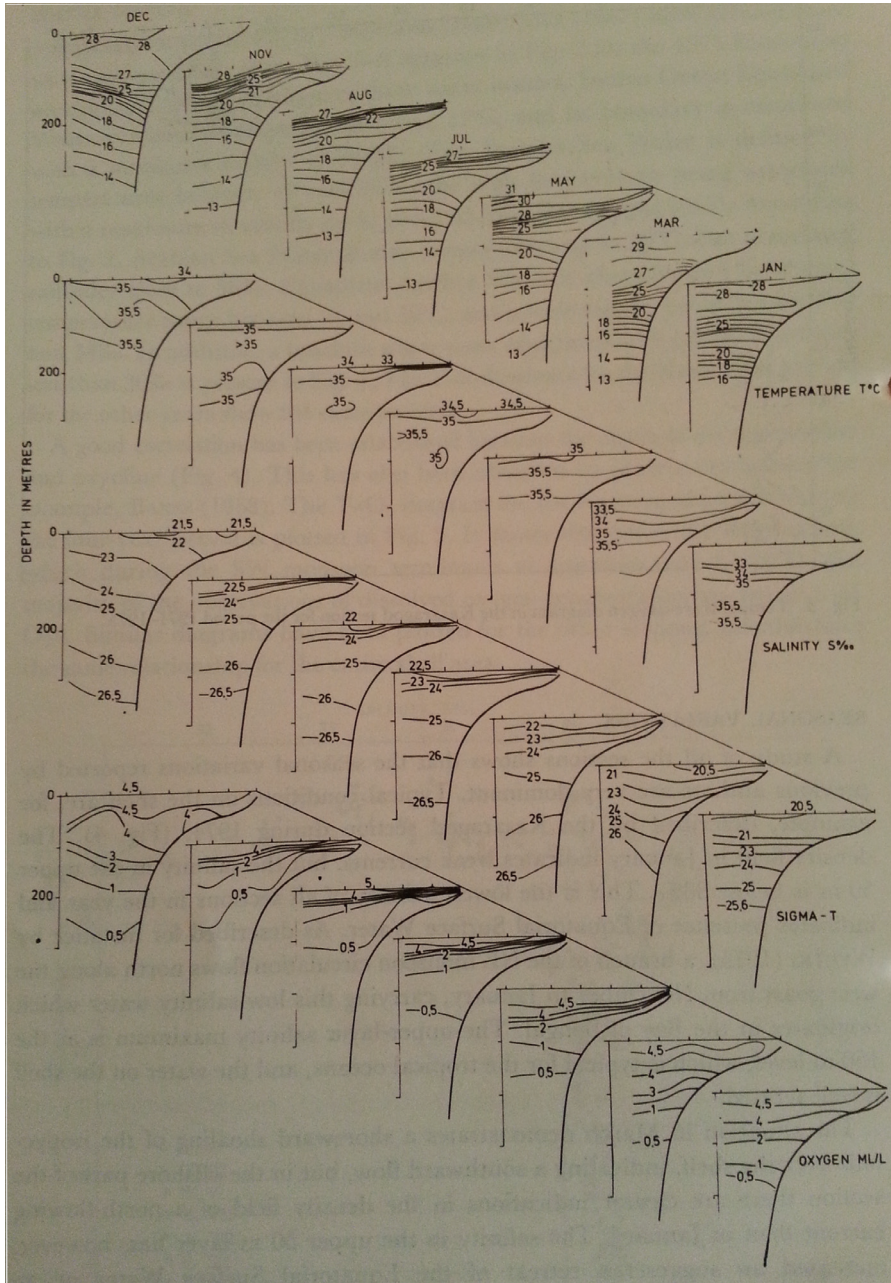 DEC
0
28
28
27
25
20
18
200
16
14
NOV
28
25
21
20
18
15
14
13
AUG
27
22
20
18
16
14
13
JUL
27
25
20
18
16
14
13
MAY
31
30
28
25
20
18
16
14
13
MAR.
29
27
25
20
18
16
14
13
JAN.
28
28
25
20
18
16
TEMPERATURE T°C
DEPTH IN METRES
0
34
35
35,5
35,5
200
35
>35
35
35
34 33
35
35
34,5 34,5
35
>35,5
35
35
35,5
35,5
33,5
34
35
35,5
33
34
35
35,5
35,5
SALINITY S‰
0
21,5 21,5
22
23
24
25
200
26
26,5
22,5
24
25
26
26,5
22
24
25
26
26,5
22,5
23
24
25
26
26,5
22
23
24
25
26
26,5
21 20,5
23
24
25
26
20,5
21
23
24
25
25,6
SIGMA-T
0
4,5
4,5
4
4
3
2
1
200
0,5
4
2
1
0,5
5
4
1
0,5
4,5
4
2
1
0,5
4,5
4
2
1
0,5
4,5
4
3
1
0,5
4,5
4
2
1
0,5
OXYGEN ML/L